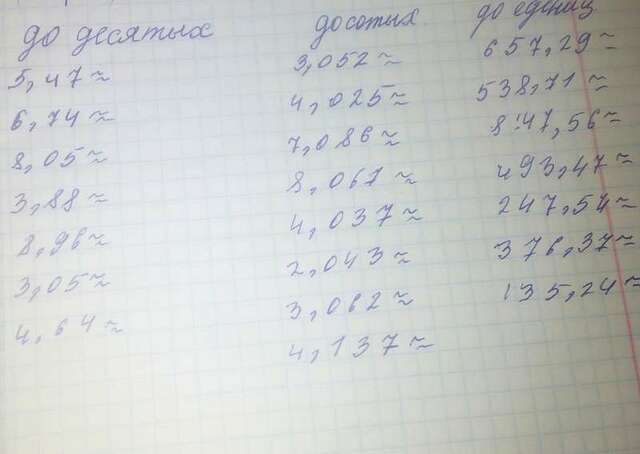 до десятых
5,47≈
6,74≈
8,05≈
3,88≈
8,96≈
3,05≈
4,64≈
до сотых
3,052≈
4,025≈
7,086≈
8,067≈
4,037≈
2,043≈
3,062≈
4,137≈
до единиц
657,29≈
538,71≈
847,56≈
493,47≈
247,54≈
376,37≈
135,24≈